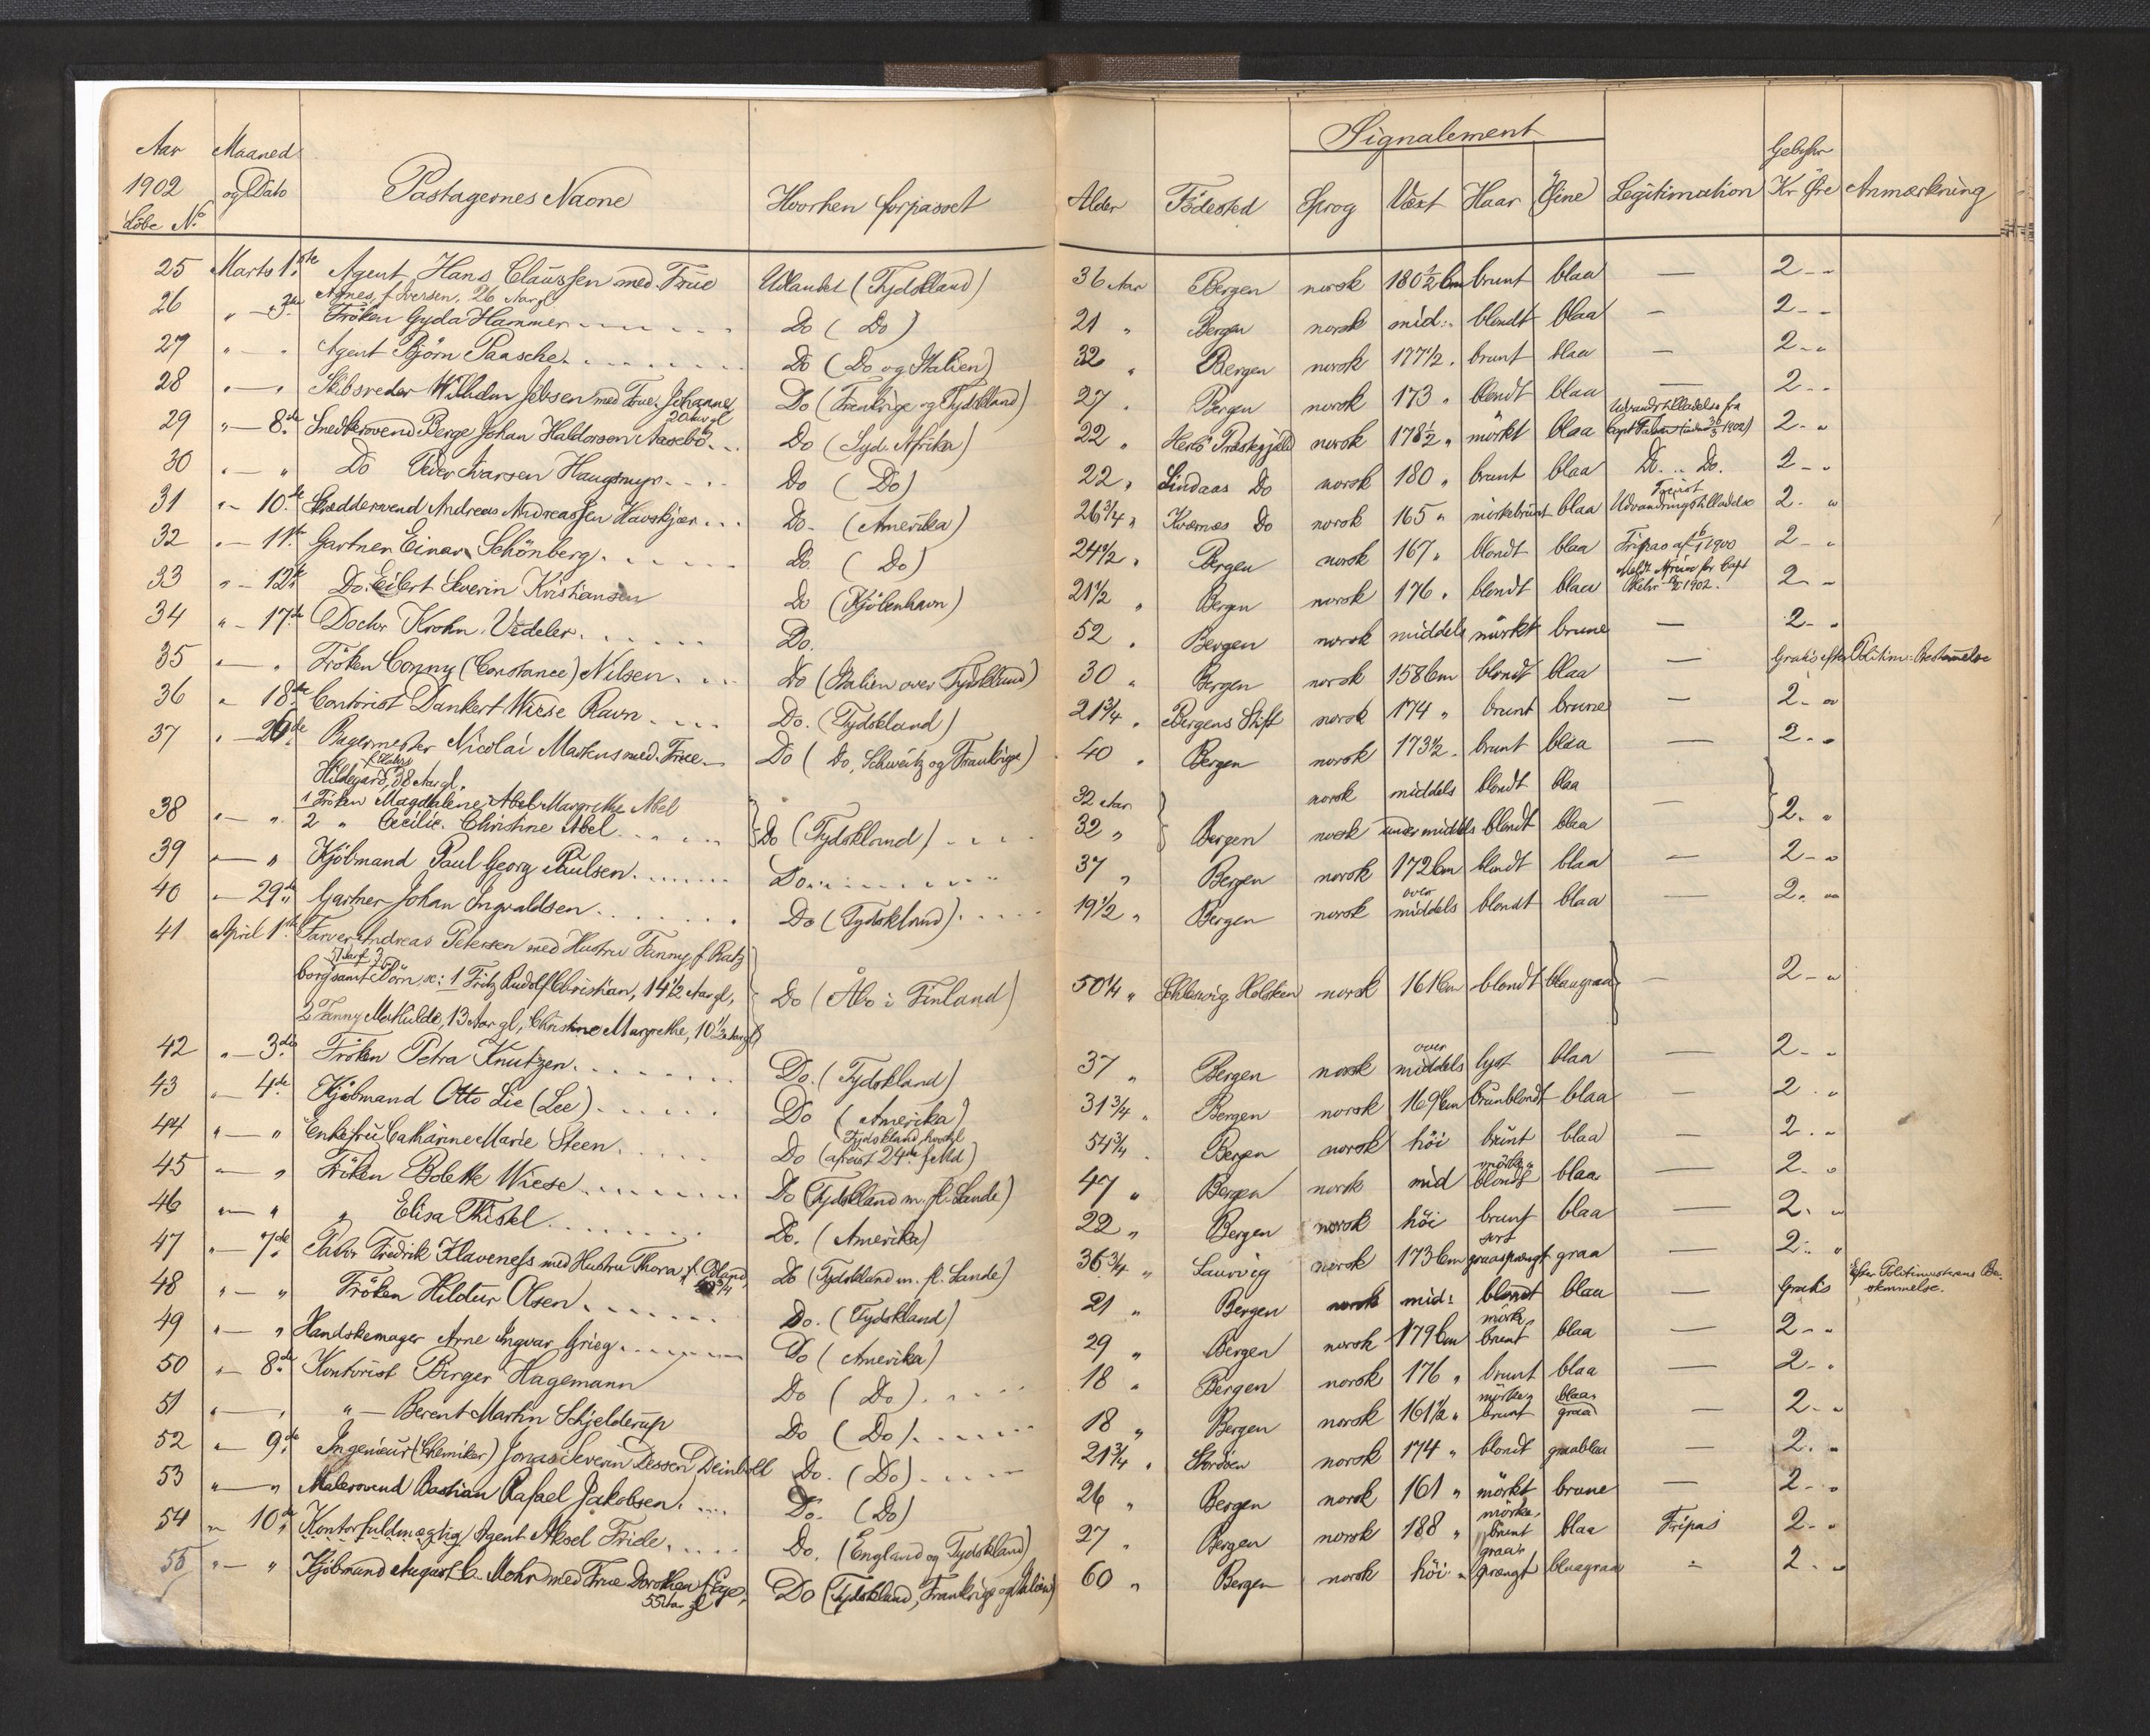 Aar Maaned Signalement Gebyhr
1902 og Dato Pastagernes Navne Hvorhen forpasset Alder Födested Sprog Væxt Haar Öine Legitimation Kr Öre Anmærkning
Löbe No
25 Marts 1ste Agent Hans Claussen med Frue Udlandet (Tydskland) 36 Aar Bergen norsk 180 1/2 Cm brunt blaa — 2 - "
Agnes f. Iversen, 26 Aar gl
26 " — 3die Fröken Gyda Hammer Do ( Do ) 21 " Bergen norsk mid: blondt blaa — 2 - "
27 " — " Agent Björn Paasche Do ( Do og Italien) 32 " Bergen norsk 177 1/2 " brunt blaa — 2 - "
28 " — " Skibsreder Wilhelm Jebsen med Frue, Johanne Do (Frankrige og Tydskland) 27 " Bergen norsk 173 " blondt blaa — 2 - "
20 Aar gl
Udvandrtilladelse fra
29 " — 8de Snedkersvend Berge Johan Haldorsen Aasebö Do (Syd. Afrika) 22 " Herlö Præstegjæld norsk 178 1/2 " mörkt blaa 2 - "
30 " — " Do Peder Ivarsen Haugmyr Do ( Do ) 22 " Lindaas Do norsk 180 " brunt blaa Do .. Do. 2 - "
31 " - 10de Skreddersvend Andreas Andreassen Havskjær Do - (Amerika) 26 3/4 " Kvernes Do norsk 165 " mörkebrunt blaa Udvandringstilladelse 2 - "
32 " — 11te Gartner Einar Schönberg Do. ( Do ) 24 1/2 " Bergen norsk 167 " blondt blaa Fripas af 1900 2 - "
33 " - 12te Do. Eilert Severin Kristiansen Do (Kjöbenhavn) 21 1/2 " Bergen norsk 176 " blondt blaa 1902. 2 - "
34 " - 17de Doctor Krohn Vedeler Do. 52 " Bergen norsk middels mörkt brune — 2 - "
35 " — " Fröken Conny (Constance) Nilsen Do (Italien over Tydskland) 30 " Bergen norsk 158 Cm blondt blaa — Gratis efter Politim: Bestemmelse
36 " - 18de Contorist Dankert Wiese Ravn Do. (Tydskland) 21 3/4 " Bergens Stift norsk 174 " brunt brune — 2 - "
37 " — 26de Bagermester Nicolai Markus med Frue Do ( Do, Schweitz og Frankrige) 40 " Bergen norsk 173 1/2 " brunt blaa — 2 - "
Hildegard, 38 Aar gl.
38 " — " 1 Fröken Magdalene Margrethe Abel 32 Aar norsk middels blondt blaa
2 " Cecilie Christine Abel Do (Tydskland) 32 " Bergen norsk under middels blondt blaa — 2. "
39 " — " Kjöbmand Paul Georg Paulsen Do 37 " Bergen norsk 172 Cm blondt blaa — 2 - "
40 " - 29de Gartner Johan Ingvaldsen Do (Tydskland) 19 1/2 " Bergen norsk over middels blondt blaa — 2. "
41 April 1ste Farver Andreas Petersen med Hustru Fanny f. Ratz
borg samt Börn, sc: 1 Fritz Rudolf Christian, 14 1/2 Aar gl, Do (Åbo i Finland) 50 1/4 " Schleswig Holsten norsk 161 Cm blondt blaugraa — 2 - "
2 Fanny Mathilde, 13 Aar gl, Christine Margrethe, 10 1/2 Aar gl
42 " — 3die Fröken Petra Knutzen Do. (Tydskland) 37 " Bergen norsk over middels lyst blaa — 2 - "
43 " — 4de Kjöbmand Otto Lie (Lee) Do (Amerika) 31 3/4 " Bergen norsk 169 Cm brunblondt blaa — 2 . "
44 " — " Enkefru Catharine Marie Steen Do (Tydskland, hvortil afreist 24de f. Md) 54 3/4 " Bergen norsk höi brunt blaa — 2 . "
45 " — " Fröken Bolette Wiese Do (Tydskland m. fl. Lande) 47 " Bergen norsk mid mörke blondt blaa — 2. "
46 " — " " Elisa Thistel Do. (Amerika) 22 " Bergen norsk höi brunt blaa — 2. "
47 " — 7de Pastor Fredrik Klaveness med Hustru Thora f. Do (Tydskland m. fl. Lande) 36 3/4 " Laurvig norsk 173 Cm sort graasprængt graa — 2: "
48 " — " Fröken Hildur Olsen Do. (Tydskland) 21 " Bergen norsk mid: blondt blaa — Gratis Efter Politimesterens Be-
stemmelse.
49 " — " Handskemager Arne Ingvar Grieg Do (Amerika) 29 " Bergen norsk 179 Cm mörke brunt blaa — 2 - "
50 " — 8de Kontorist Birger Hagemann Do ( Do ) 18 " Bergen norsk 176 " brunt blaa — 2 - "
51 " — " " — Berent Martin Schjelderup Do ( Do ) 18 " Bergen norsk 161 1/2 " mörke brunt blaa graa — 2 - "
52 " — 9de Ingeniöur (Chemiker) Jonas Severin Dessen Deinboll Do. ( Do ) 21 3/4 " norsk 174 " blondt graablaa — 2. "
53 " — " Malersvend Bastian Rafael Jakobsen Do. ( Do ) 26 " Bergen norsk 161 " mörkt brune — 2 - "
54 " 10de Kontorfuldmægtig, Agent Aksel Friele Do. (England og Tydskland) 27 " Bergen norsk 188 " mörke brunt blaa Fripas 2 - "
55 " — " Kjöbmand August C. Mohr med Frue Dorothea f. Ege, Do (Tydskland, Frankrige og Italien) 60 " Bergen norsk höi graa sprængt blaagraa " 2 - "
55 Aar gl